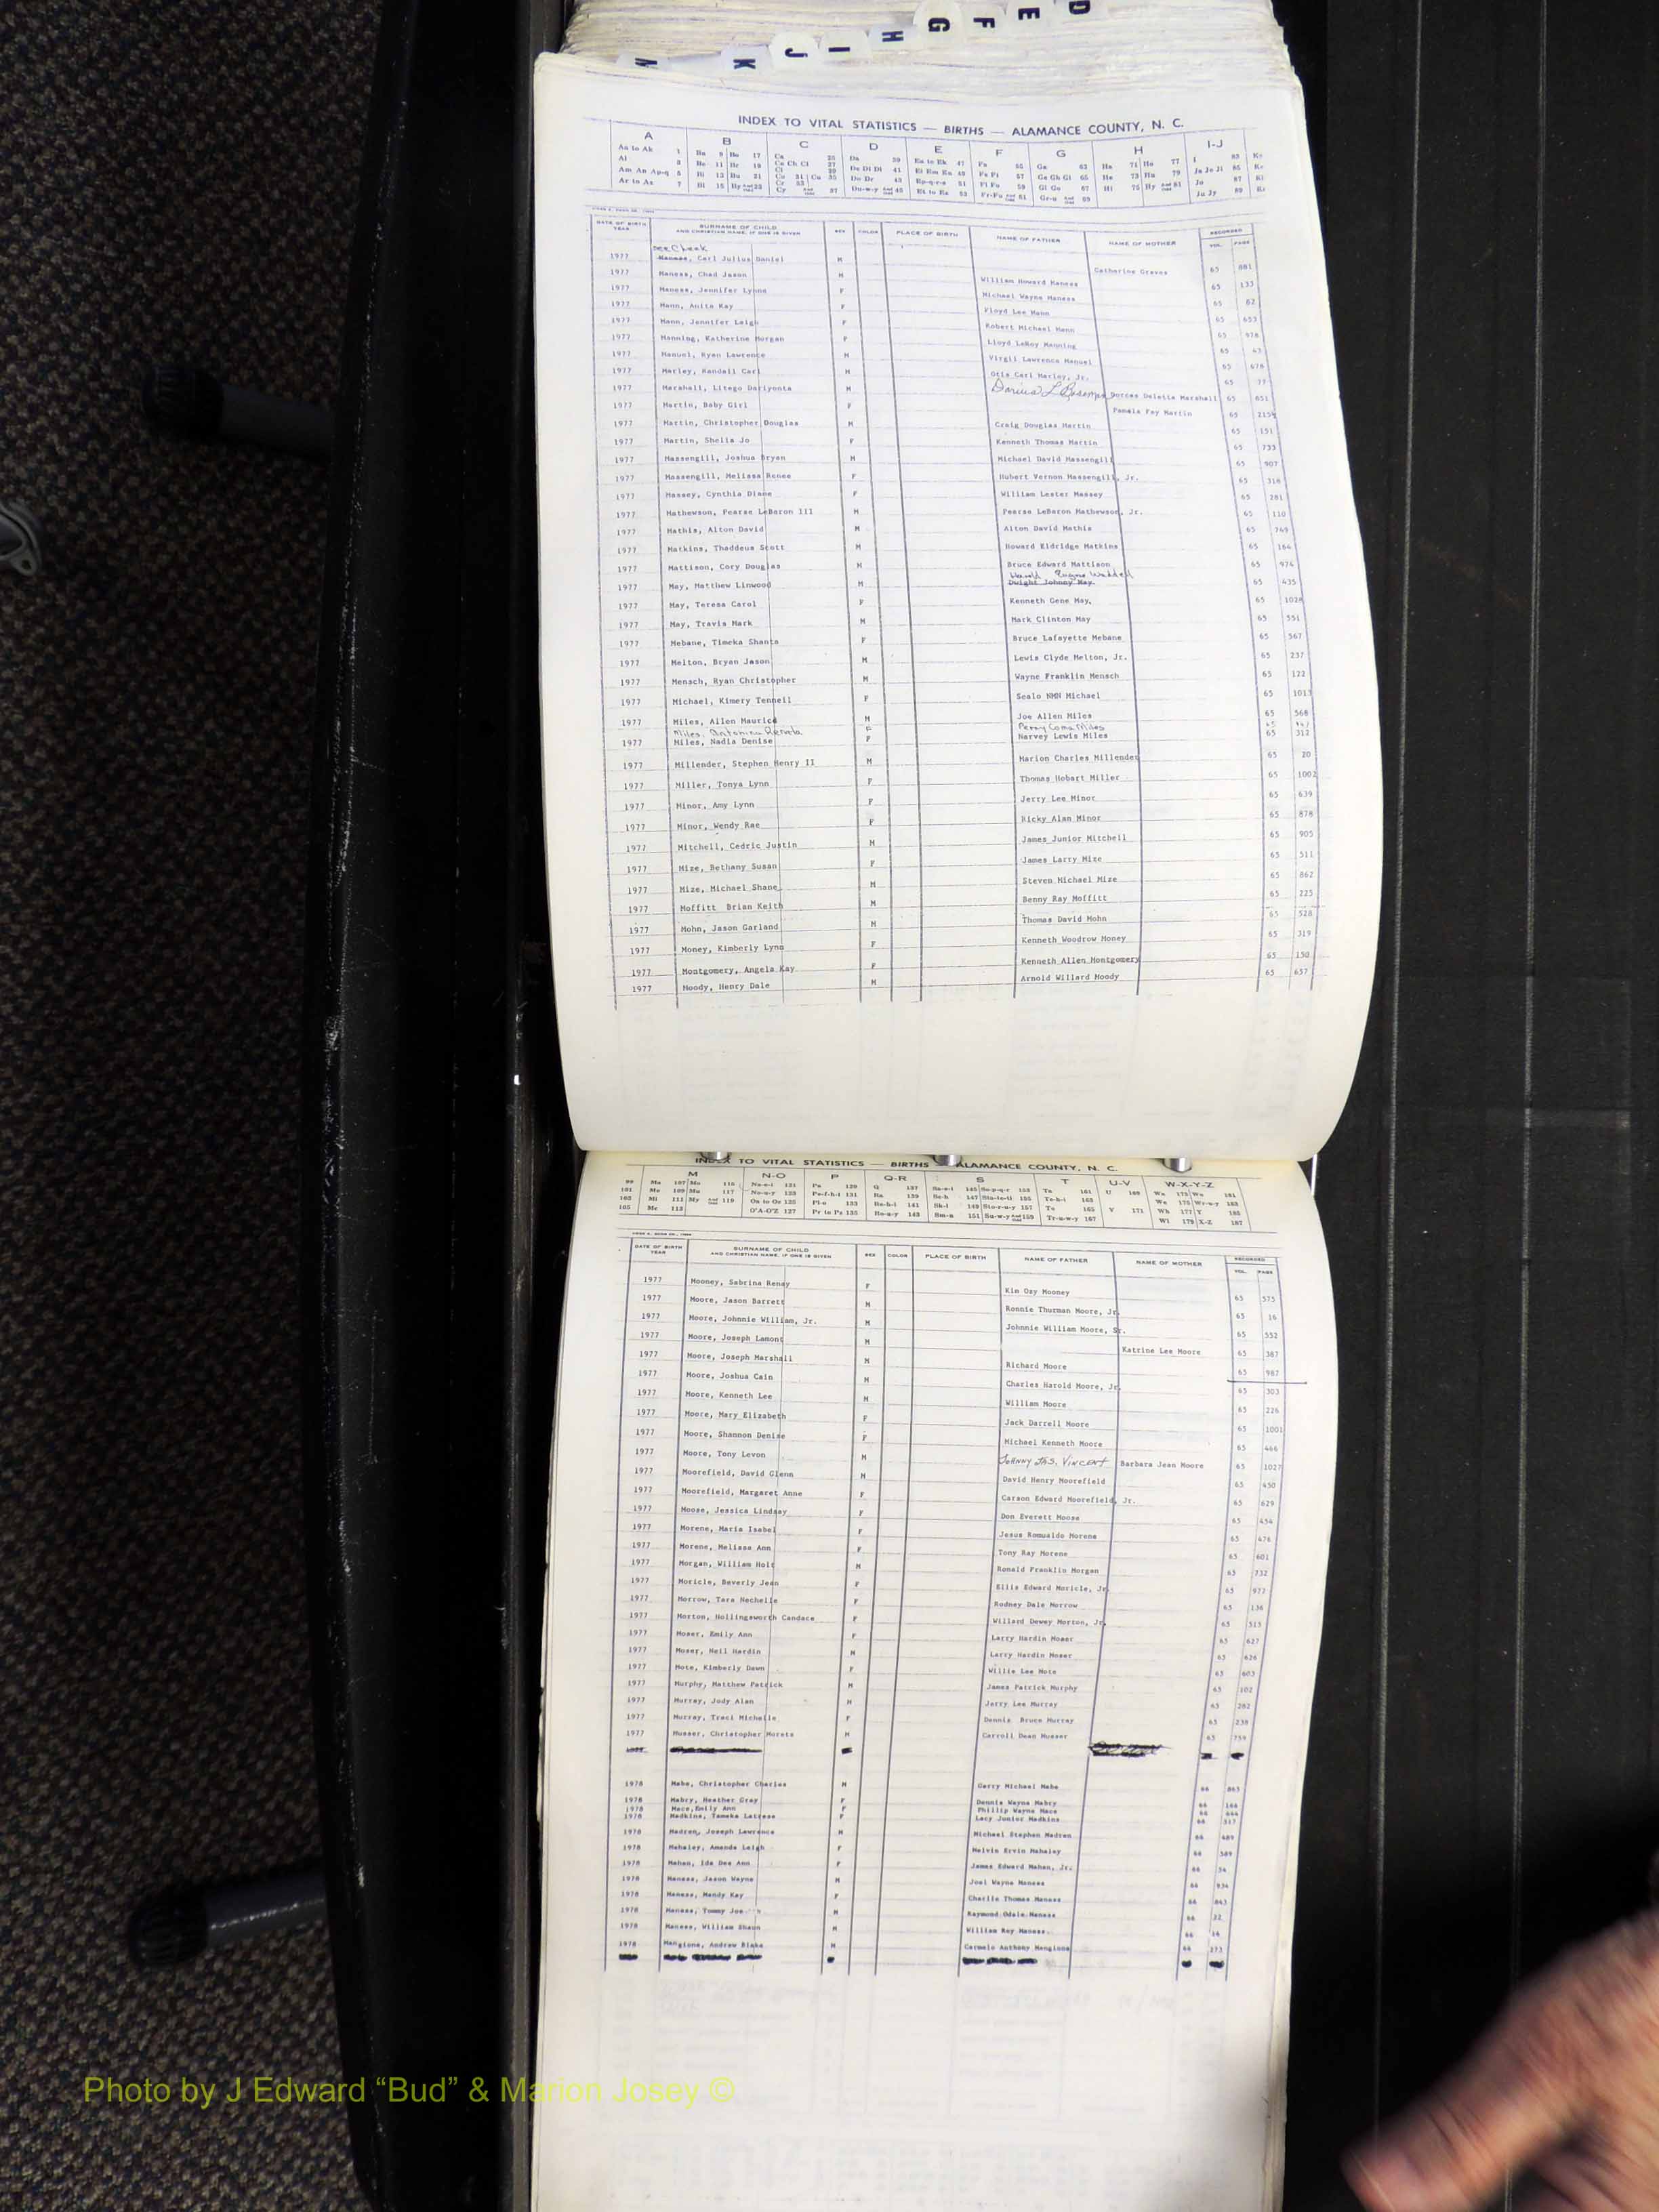 D
E
F
G
H
I
J
K
INDEX TO VITAL STATISTICS — BIRTHS — ALAMANCE COUNTY, N. C.
A B C D E F G H I-J
DATE OF BIRTH YEAR SURNAME OF CHILD AND CHRISTIAN NAME, IF ONE IS GIVEN SEX COLOR PLACE OF BIRTH NAME OF FATHER NAME OF MOTHER RECORDED VOL. PAGE
see Cheek
1977 Maness, Carl Julius Daniel M Catherine Graves 65 881
1977 Maness, Chad Jason M William Howard Maness 65 133
1977 Maness, Jennifer Lynne F Michael Wayne Maness 65 82
1977 Mann, Anita Kay F Floyd Lee Mann 65 653
1977 Mann, Jennifer Leigh F Robert Michael Mann 65
1977 Manning, Katherine Morgan F Lloyd LeRoy Manning 65 43
1977 Manuel, Ryan Lawrence M Virgil Lawrence Manuel 65 678
1977 Marley, Randall Carl M Otis Carl Marley, Jr. 65 77
1977 Marshall, Litego Dariyonta M Darius L Dorces Deleita Marshall 65 651
1977 Martin, Baby Girl F Pamela Fey Martin 65
1977 Martin, Christopher Douglas M Craig Douglas Martin 65 151
1977 Martin, Shelia Jo F Kenneth Thomas Martin 65 733
1977 Massengill, Joshua Bryan M Michael David Massengill 65 907
1977 Massengill, Melissa Renee F Hubert Vernon Massengill, Jr. 65 318
1977 Massey, Cynthia Diane F William Lester Massey 65 281
1977 Mathewson, Pearse LeBaron III M Pearse LeBaron Mathewson, Jr. 65 110
1977 Mathis, Alton David M Alton David Mathis 65 749
1977 Matkins, Thaddeus Scott M Howard Eldridge Matkins 65 164
1977 Mattison, Cory Douglas M Bruce Edward Mattison 65 974
Harold Eugene Waddell
1977 May, Matthew Linwood M Dwight Johnny May 65 435
1977 May, Teresa Carol F Kenneth Gene May, 65 1028
1977 May, Travis Mark M Mark Clinton May 65 551
1977 Mebane, Timeka Shanta F Bruce Lafayette Mebane 65 567
1977 Melton, Bryan Jason M Lewis Clyde Melton, Jr. 65 237
1977 Mensch, Ryan Christopher M Wayne Franklin Mensch 65 122
1977 Michael, Kimery Tennell F Sealo NMN Michael 65 1013
1977 Miles, Allen Maurice M Joe Allen Miles 65 568
Miles, F Perry Como Miles 65
1977 Miles, Nadia Denise F Harvey Lewis Miles 65 312
1977 Millender, Stephen Henry II M Marion Charles Millender 65 20
1977 Miller, Tonya Lynn F Thomas Hobart Miller 65 1002
1977 Minor, Amy Lynn F Jerry Lee Minor 65 639
1977 Minor, Wendy Rae F Ricky Alan Minor 65 878
1977 Mitchell, Cedric Justin M James Junior Mitchell 65 905
1977 Mize, Bethany Susan F James Larry Mize 65 511
1977 Mize, Michael Shane M Steven Michael Mize 65 862
1977 Moffitt Brian Keith M Benny Ray Moffitt 65 225
1977 Mohn, Jason Garland M Thomas David Mohn 65 528
1977 Money, Kimberly Lynn F Kenneth Woodrow Money 65 319
1977 Montgomery, Angela Kay F Kenneth Allen Montgomery 65 150
1977 Moody, Henry Dale M Arnold Willard Moody 65 657
INDEX TO VITAL STATISTICS — BIRTHS — ALAMANCE COUNTY, N. C.
M N-O P Q-R S T U-V W-X-Y-Z
DATE OF BIRTH YEAR SURNAME OF CHILD AND CHRISTIAN NAME, IF ONE IS GIVEN SEX COLOR PLACE OF BIRTH NAME OF FATHER NAME OF MOTHER RECORDED VOL. PAGE
1977 Mooney, Sabrina Renay F Kim Ozy Mooney 65 575
1977 Moore, Jason Barrett M Ronnie Thurman Moore, Jr. 65 16
1977 Moore, Johnnie William, Jr. M Johnnie William Moore, Sr. 65 552
1977 Moore, Joseph Lamont M Katrine Lee Moore 65 387
1977 Moore, Joseph Marshall M Richard Moore 65 987
1977 Moore, Joshua Cain M Charles Harold Moore, Jr. 65 303
1977 Moore, Kenneth Lee M William Moore 65 226
1977 Moore, Mary Elizabeth F Jack Darrell Moore 65 1001
1977 Moore, Shannon Denise F Michael Kenneth Moore 65 466
1977 Moore, Tony Levon M Johnny Jas. Vincent Barbara Jean Moore 65 1027
1977 Moorefield, David Glenn M David Henry Moorefield 65 450
1977 Moorefield, Margaret Anne F Carson Edward Moorefield, Jr. 65 629
1977 Moose, Jessica Lindsay F Don Everett Moose 65 454
1977 Morene, Maria Isabel F Jesus Romualdo Morene 65 476
1977 Morene, Melissa Ann F Tony Ray Morene 65 601
1977 Morgan, William Holt M Ronald Franklin Morgan 65 732
1977 Moricle, Beverly Jean F Ellis Edward Moricle, Jr. 65 977
1977 Morrow, Tara Nechelle F Rodney Dale Morrow 65 136
1977 Morton, Hollingsworth Candace F Willard Dewey Morton, Jr. 65 515
1977 Moser, Emily Ann F Larry Hardin Moser 65 627
1977 Moser, Neil Hardin M Larry Hardin Moser 65 626
1977 Mote, Kimberly Dawn F Willie Lee Mote 65 603
1977 Murphy, Matthew Patrick M James Patrick Murphy 65 102
1977 Murray, Jody Alan M Jerry Lee Murray 65 282
1977 Murray, Traci Michelle F Dennis Bruce Murray 65 238
1977 Musser, Christopher Moretz M Carroll Dean Musser 65 759
1978 Mabe, Christopher Charles M Garry Michael Mabe 66 865
1978 Mabry, Heather Gray F Dennis Wayne Mabry 66 166
1978 Mace, Emily Ann F Phillip Wayne Mace 66 644
1978 Madkins, Tameka Latrese F Lacy Junior Madkins 66 517
1978 Madren, Joseph Lawrence M Michael Stephen Madren 66 489
1978 Mahaley, Amanda Leigh F Melvin Ervin Mahaley 66 589
1978 Mahan, Ida Dee Ann F James Edward Mahan, Jr. 66 54
1978 Maness, Jason Wayne M Joel Wayne Maness 66 934
1978 Maness, Mandy Kay F Charlie Thomas Maness 66 843
1978 Maness, Tommy Joe M Raymond Odale Maness 66 22
1978 Maness, William Shaun M William Ray Maness 66 16
1978 Mangione, Andrew Blake M Carmelo Anthony Mangione 66 173
Photo by J Edward “Bud” & Marion Josey ©